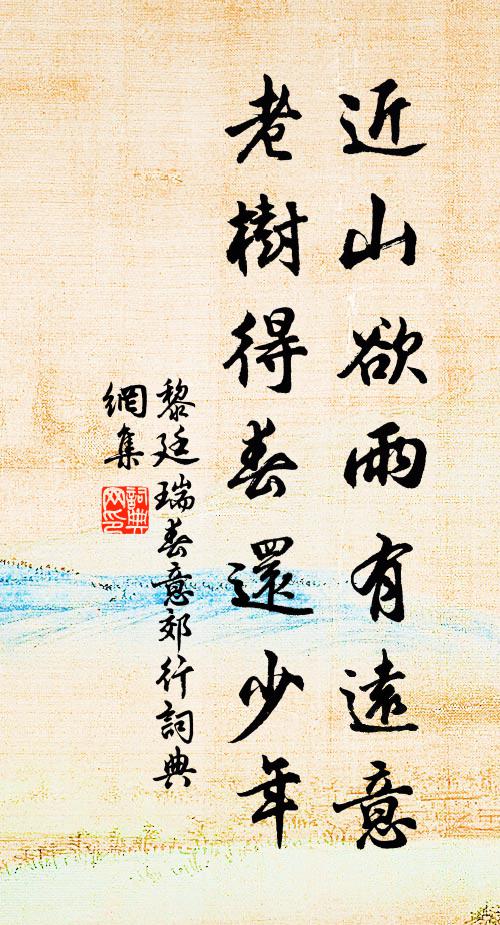 近山欲雨有遠意
老樹得春還少年
黎廷瑞春意郊行詞典
網集
詞典
网印